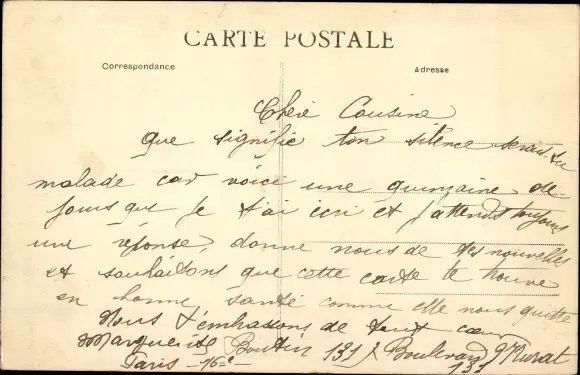 CARTE POSTALE
Correspondance
Adresse
Chère Cousine
que signifie ton silence serais tu
malade car voici une quinzaine de
jours que je t'ai écri et j'attends toujours
une réponse, donne nous de tes nouvelles
et souhaitons que cette carte te trouve
en bonne santé comme elle nous quitte
Nous t'embrassons de tout cœur
Marguerite Boutin 131 Boulevard Murat
Paris - 16e - 131